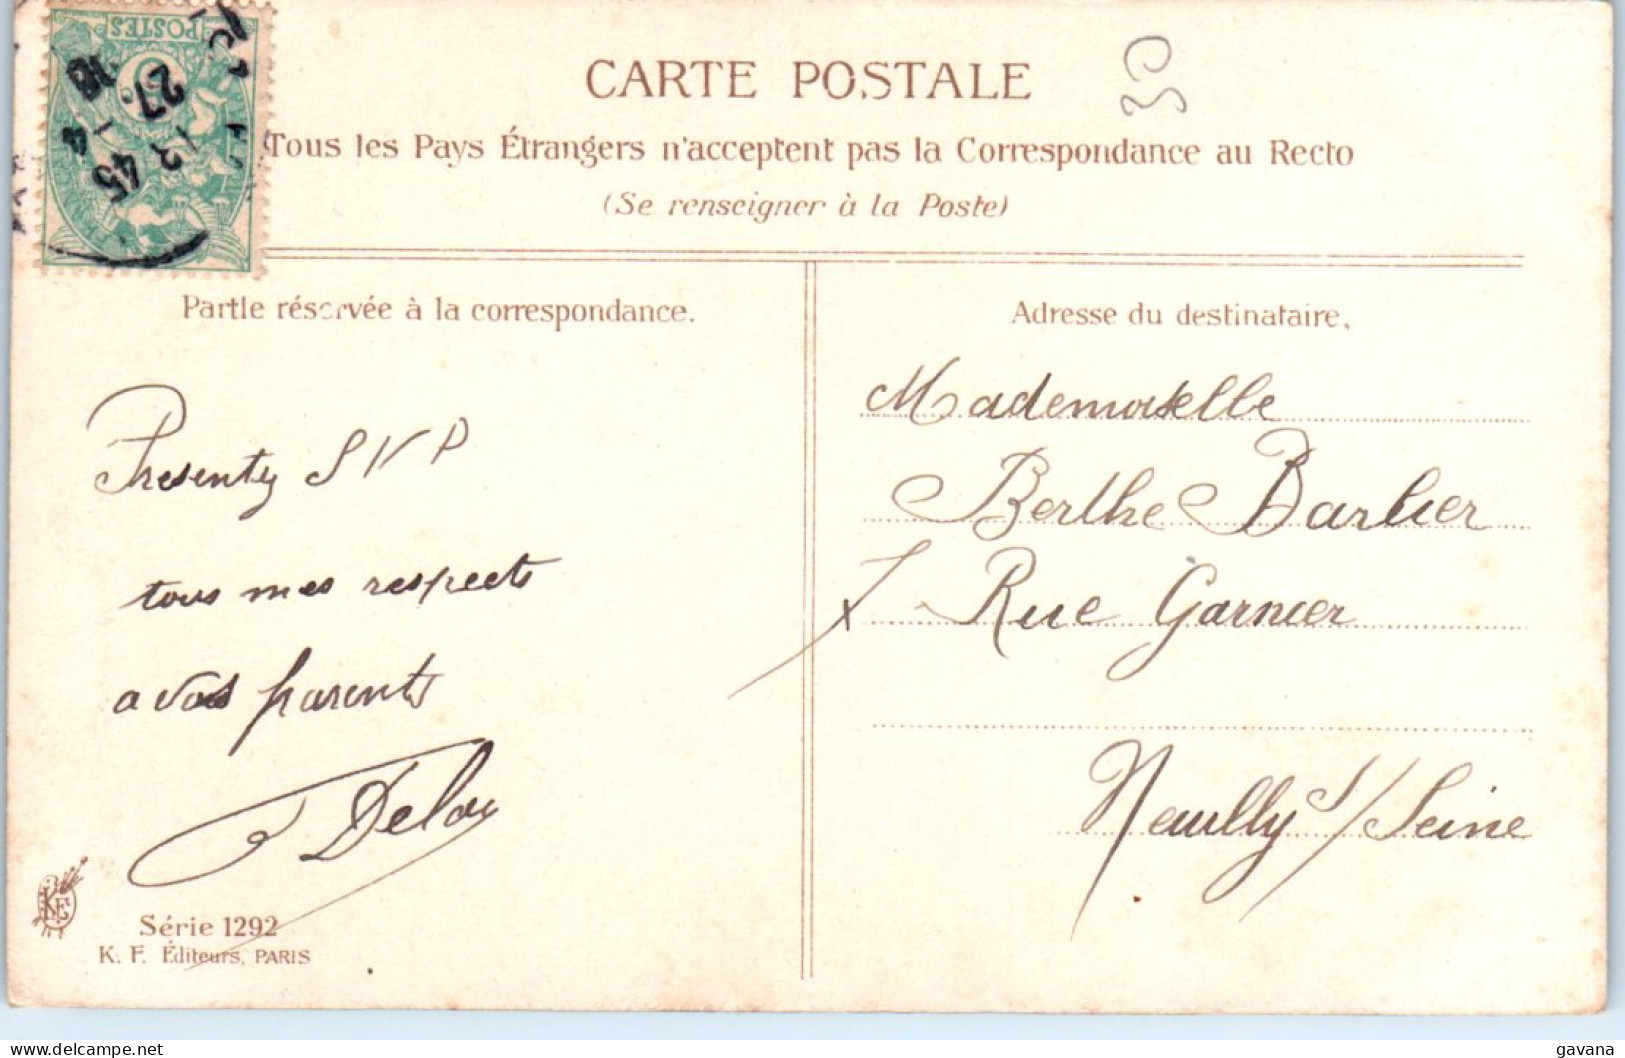 POSTES
5
13 45
27 - 4
10
CARTE POSTALE
30
Tous les Pays Étrangers n'acceptent pas la Correspondance au Recto
(Se renseigner à la Poste)
Partie réservée à la correspondance.
Presentez SVP
tous mes respects
a vos parents
Adresse du destinataire.
Mademoiselle
Berthe Barbier
7 Rue Garnier
Neuilly s/Seine
KF
Série 1292
K. F. Éditeurs, PARIS
delcampe.net
gavana